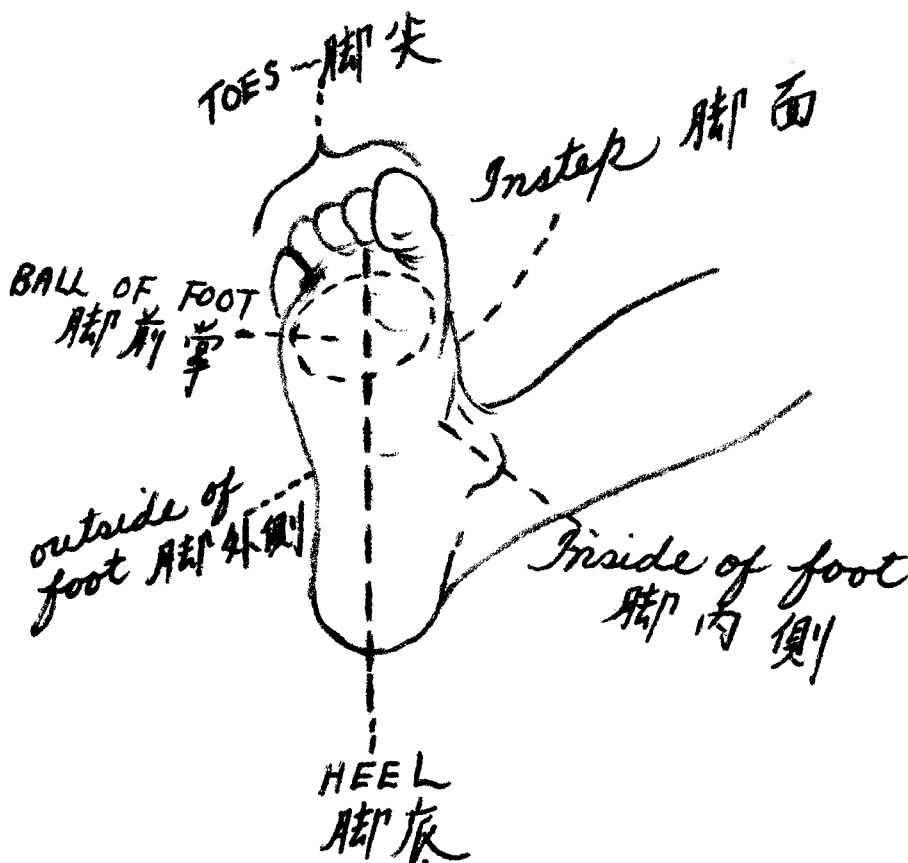 TOES — 脚尖
Instep 脚面
BALL OF FOOT
脚前掌
outside of
foot 脚外側
Inside of foot
脚内側
HEEL
脚底